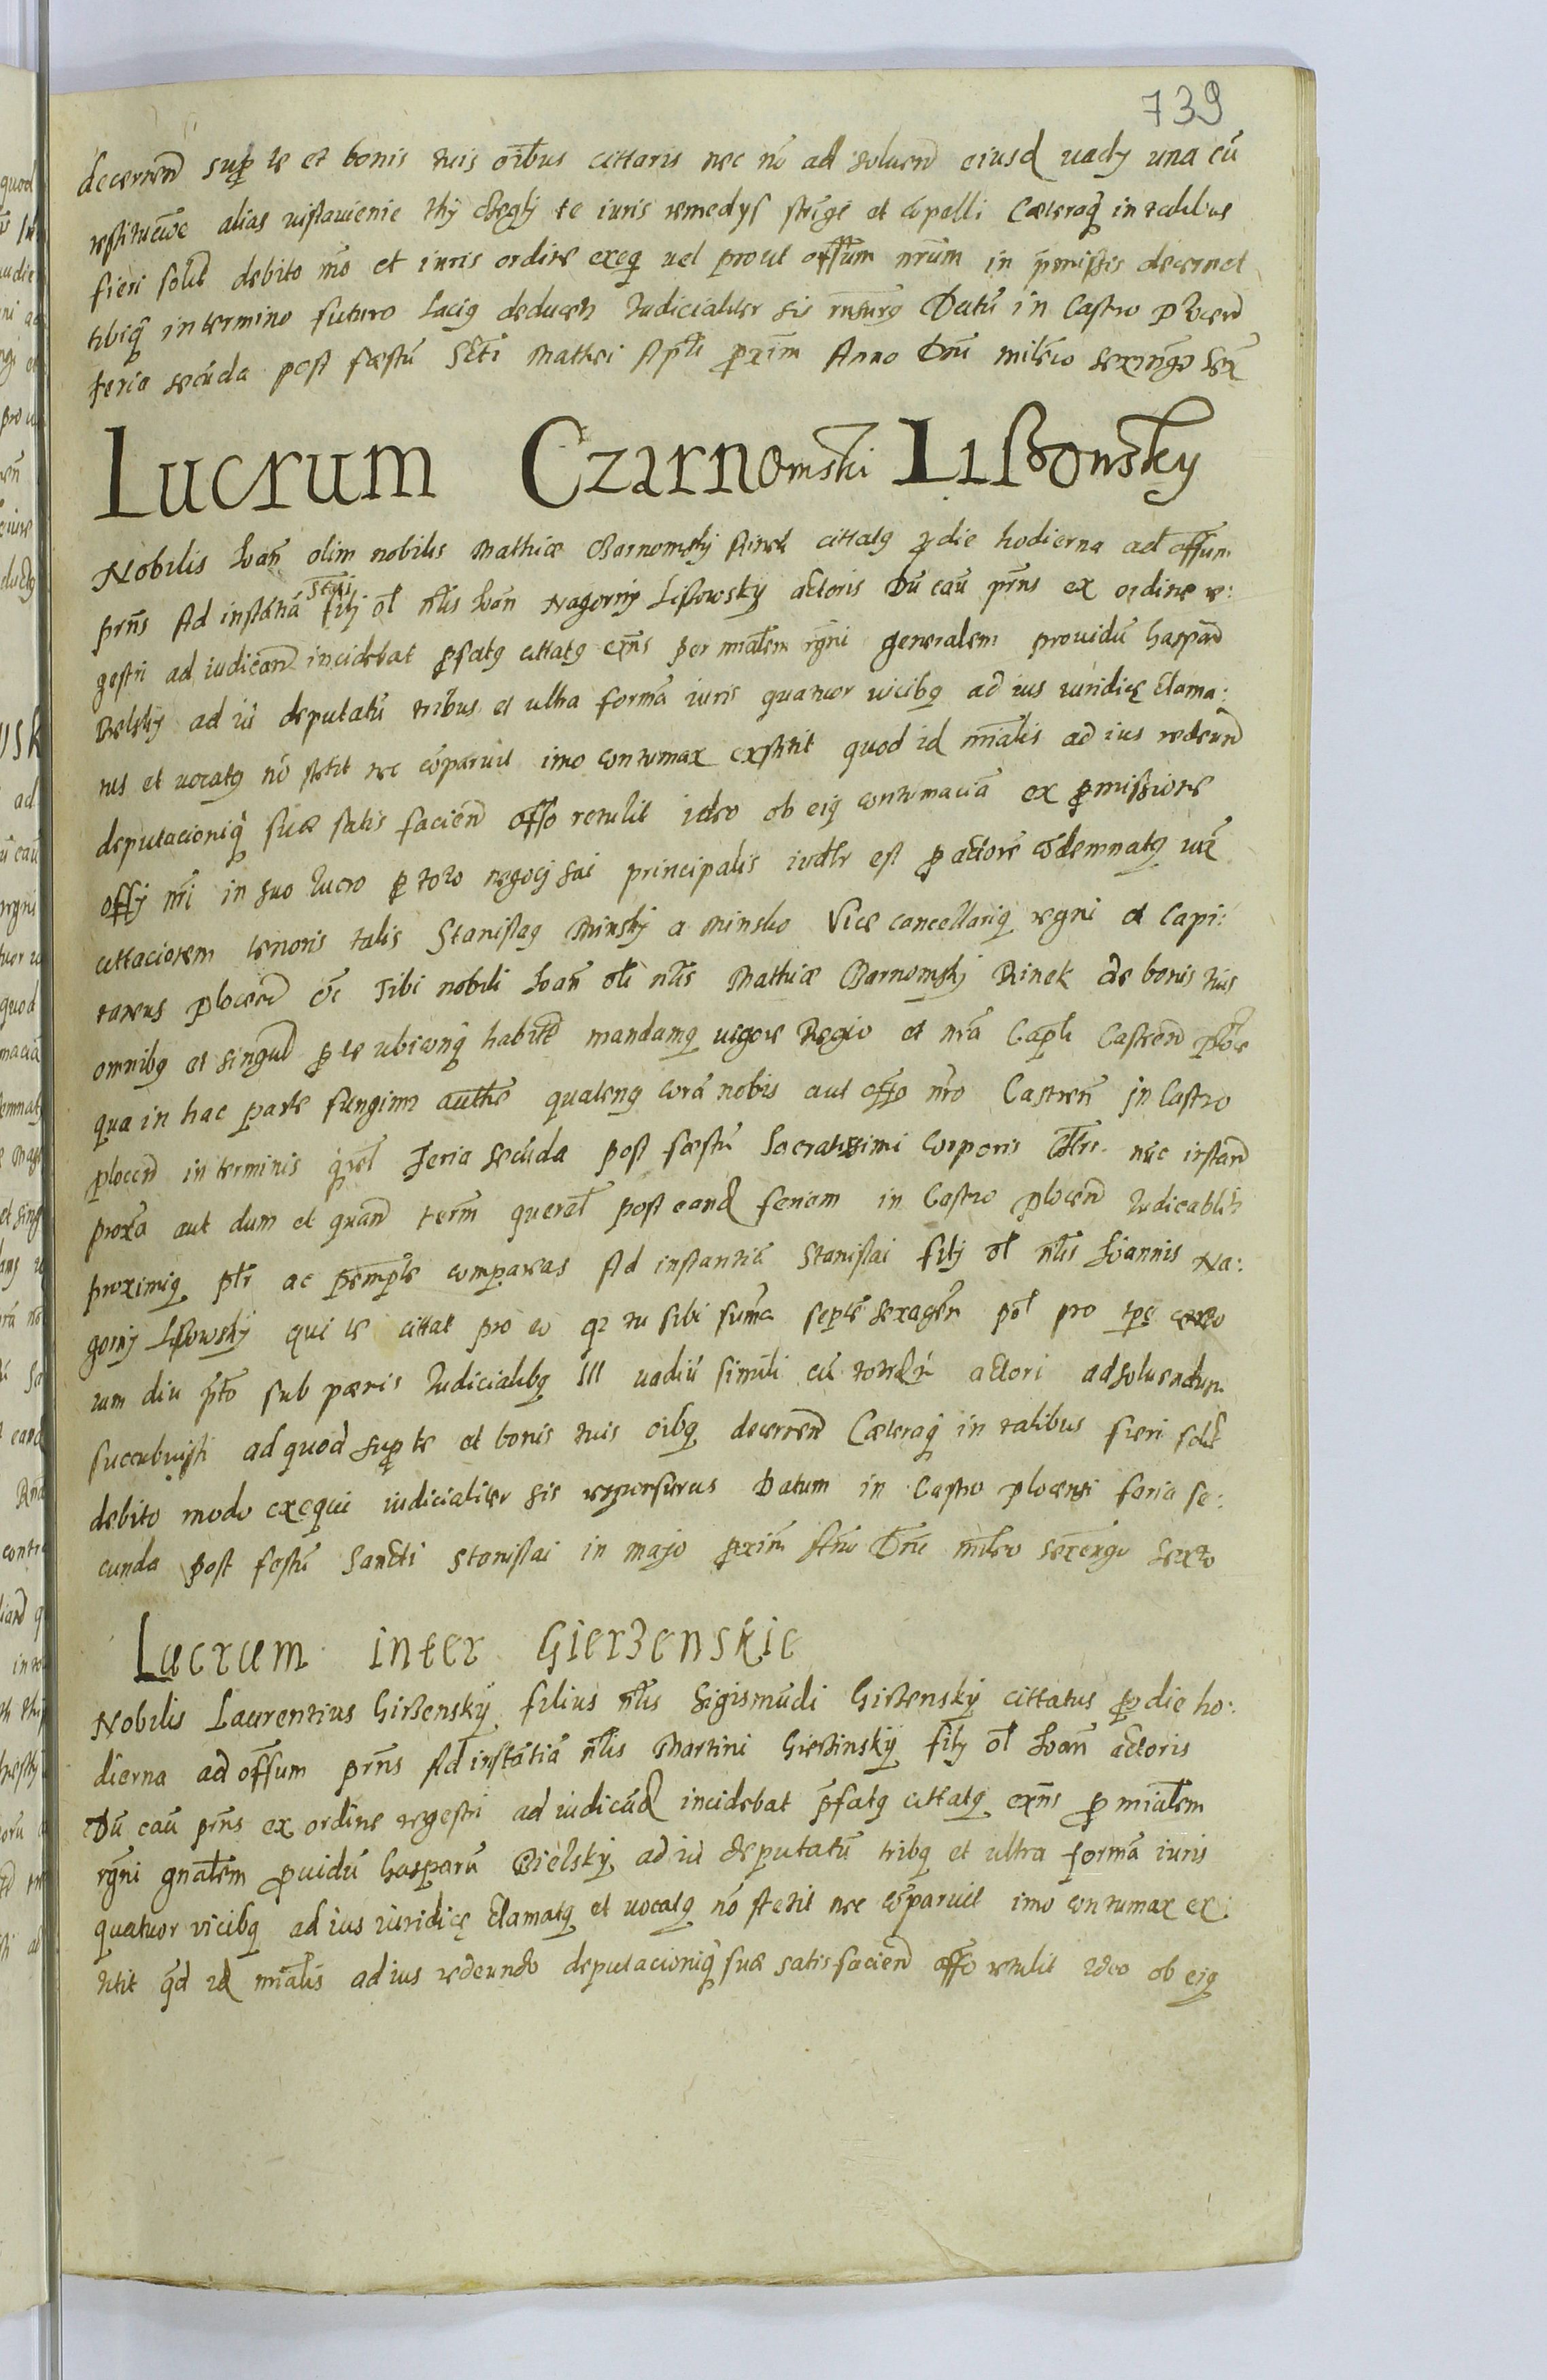 739
decernend sup te et bonis tuis oibus cittaris nec nō ad soluend eiusd uadÿ una cū
restitucioe alias wistawienie thÿ Cżegłÿ te iuris remedys stringi et cōpelli Cæteraq in talibus
fieri solit debito mo et iuris ordine exeq uel prout offum nrum in pmissis decernet
tibiq in termino futuro laciq deducen Iudicialiter sis rnsurq Datū in Castro Plocen
feria secūda post fæstū Scti Mathei Apli proxim Anno Dni milleo sexingo sex
Lucrum Czarnomski Lißowsky
Nobilis Ioan olim nobilis Mathiæ Czarnomsky Rinek cittatq p die hodierna ad offum
prns Ad instātiā Stai filÿ ol nlis Ioan Nagorny Lissowsky actoris Dū cau prns ex ordine re:
gestri ad iudicand incidebat pfatq cittatq exns per mialem rgni generalem prouidū Gaspar
Bielsky ad iū deputatū tribus et ultra formā iuris quatuor uicibq ad ius iuridicę clama:
tus et uocatq nō stetit nec cōparuit imo contumax exstitit quod id mialis ad ius redeund
deputacioniq suæ satis faciend offo retulit ideo ob eiq contumaciā ex pmissione
offÿ nri in suo lucro p toto negocÿ sui principalis iudlr est p actore cōdemnatq iux
cittacionem tenoris talis Stanislaq Minsky a Minsko Vice cancellariq regni et Capi:
taneus plocen etc Tibi nobili Ioan oli nlis Mathiæ Czarnomsky Rinek de bonis tuis
omnibq et singul p te ubicunq habit mandamq uigore Regio et nra Capli Castren ploc
qua in hac parte fungimr authe quatenq corā nobis aut offo nro Castren in Castro
plocen in terminis querel Feria secūda post fæstū Sacratissimi Corporis Chri nūc instand
proxa aut dum et quand term querel post eand feriam in Castro plocen Iudicablitr
proximiq ptr ac pempte compareas Ad instantiā Stanislai filÿ ol nlis Ioannis Na:
gorny Lissowsky qui te cittat pro eo q tu sibi sumā septē sexagen pol pro tpe certo
iam diu pto sub pænis Iudicialibq III uadiū simili cū actori adsoluendum
succubuisti ad quod sup te et bonis tuis oibq decernend Cæteraq in talibus fieri solit
debito modo exequi iudicialiter sis responsurus Datum in Castro plocensi feria se:
cunda post festū Sancti Stanislai in majo proxim Ano Dni milleo sexcengo sexto
Lucrum inter Gierzenskie
Nobilis Laurentius Girżensky filius nlis Sigismūdi Girżensky cittatus p die ho:
dierna ad offum prns Ad instātiā nlis Martini Gierżinsky filÿ ol Ioan actoris
Dū cau prns ex ordine regestri ad iudicād incidebat pfatq cittatq exns p mialem
rgni gnalem puidū Gasparū Bielsky ad iū deputatū tribq et ultra formā iuris
quatuor vicibq ad ius iuridicę clamatq et uocatq nō stetit nec cōparuit imo contumax ex:
titit qd id mialis ad ius redeundo deputacioniq suæ satis faciend offo retulit ideo ob eiq